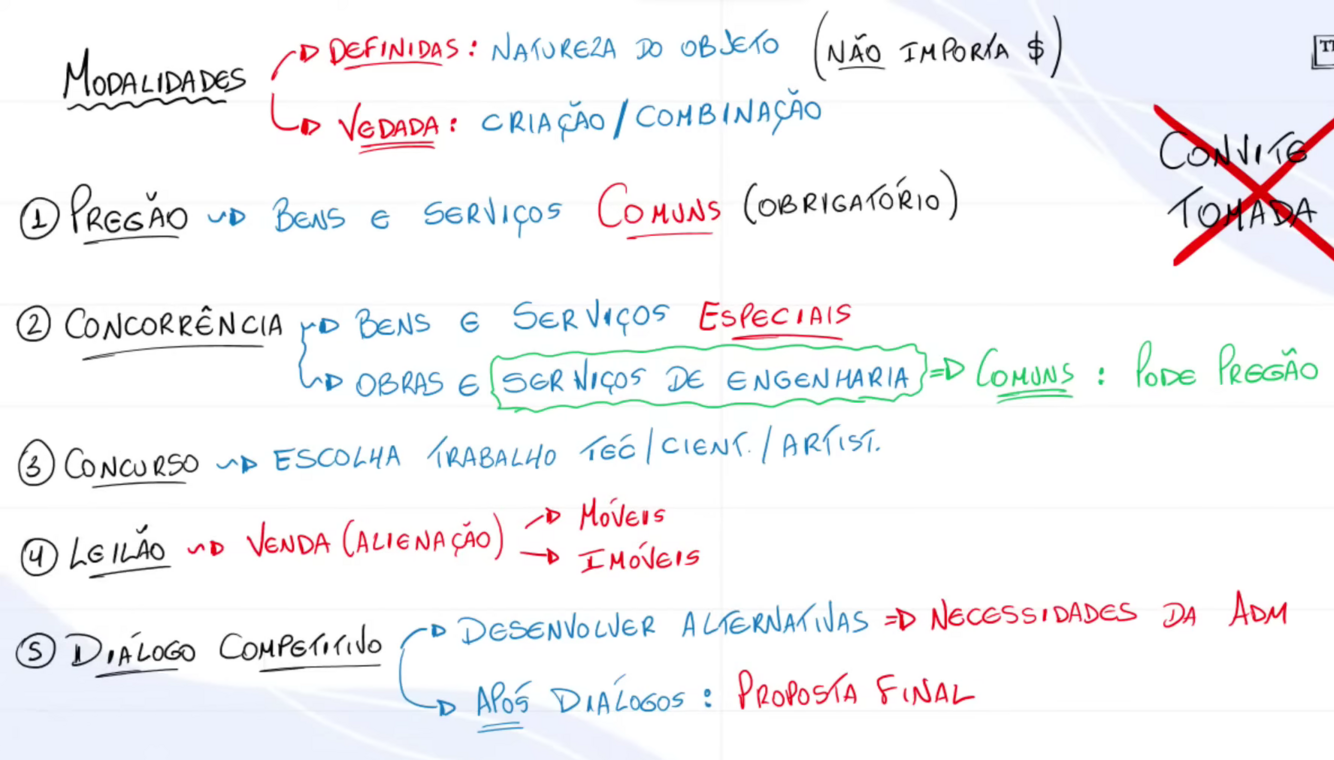 MODALIDADES
DEFINIDAS: NATUREZA DO OBJETO (NÃO IMPORTA $)
VEDADA: CRIAÇÃO/COMBINAÇÃO
CONVITE
TOMADA
① PREGÃO BENS E SERVIÇOS COMUNS (OBRIGATÓRIO)
② CONCORRÊNCIA BENS E SERVIÇOS ESPECIAIS
OBRAS E SERVIÇOS DE ENGENHARIA => COMUNS: PODE PREGÃO
③ CONCURSO ESCOLHA TRABALHO TÉC/CIENT./ARTIST.
④ LEILÃO VENDA (ALIENAÇÃO) MÓVEIS
IMÓVEIS
⑤ DIÁLOGO COMPETITIVO DESENVOLVER ALTERNATIVAS => NECESSIDADES DA ADM
APÓS DIÁLOGOS: PROPOSTA FINAL